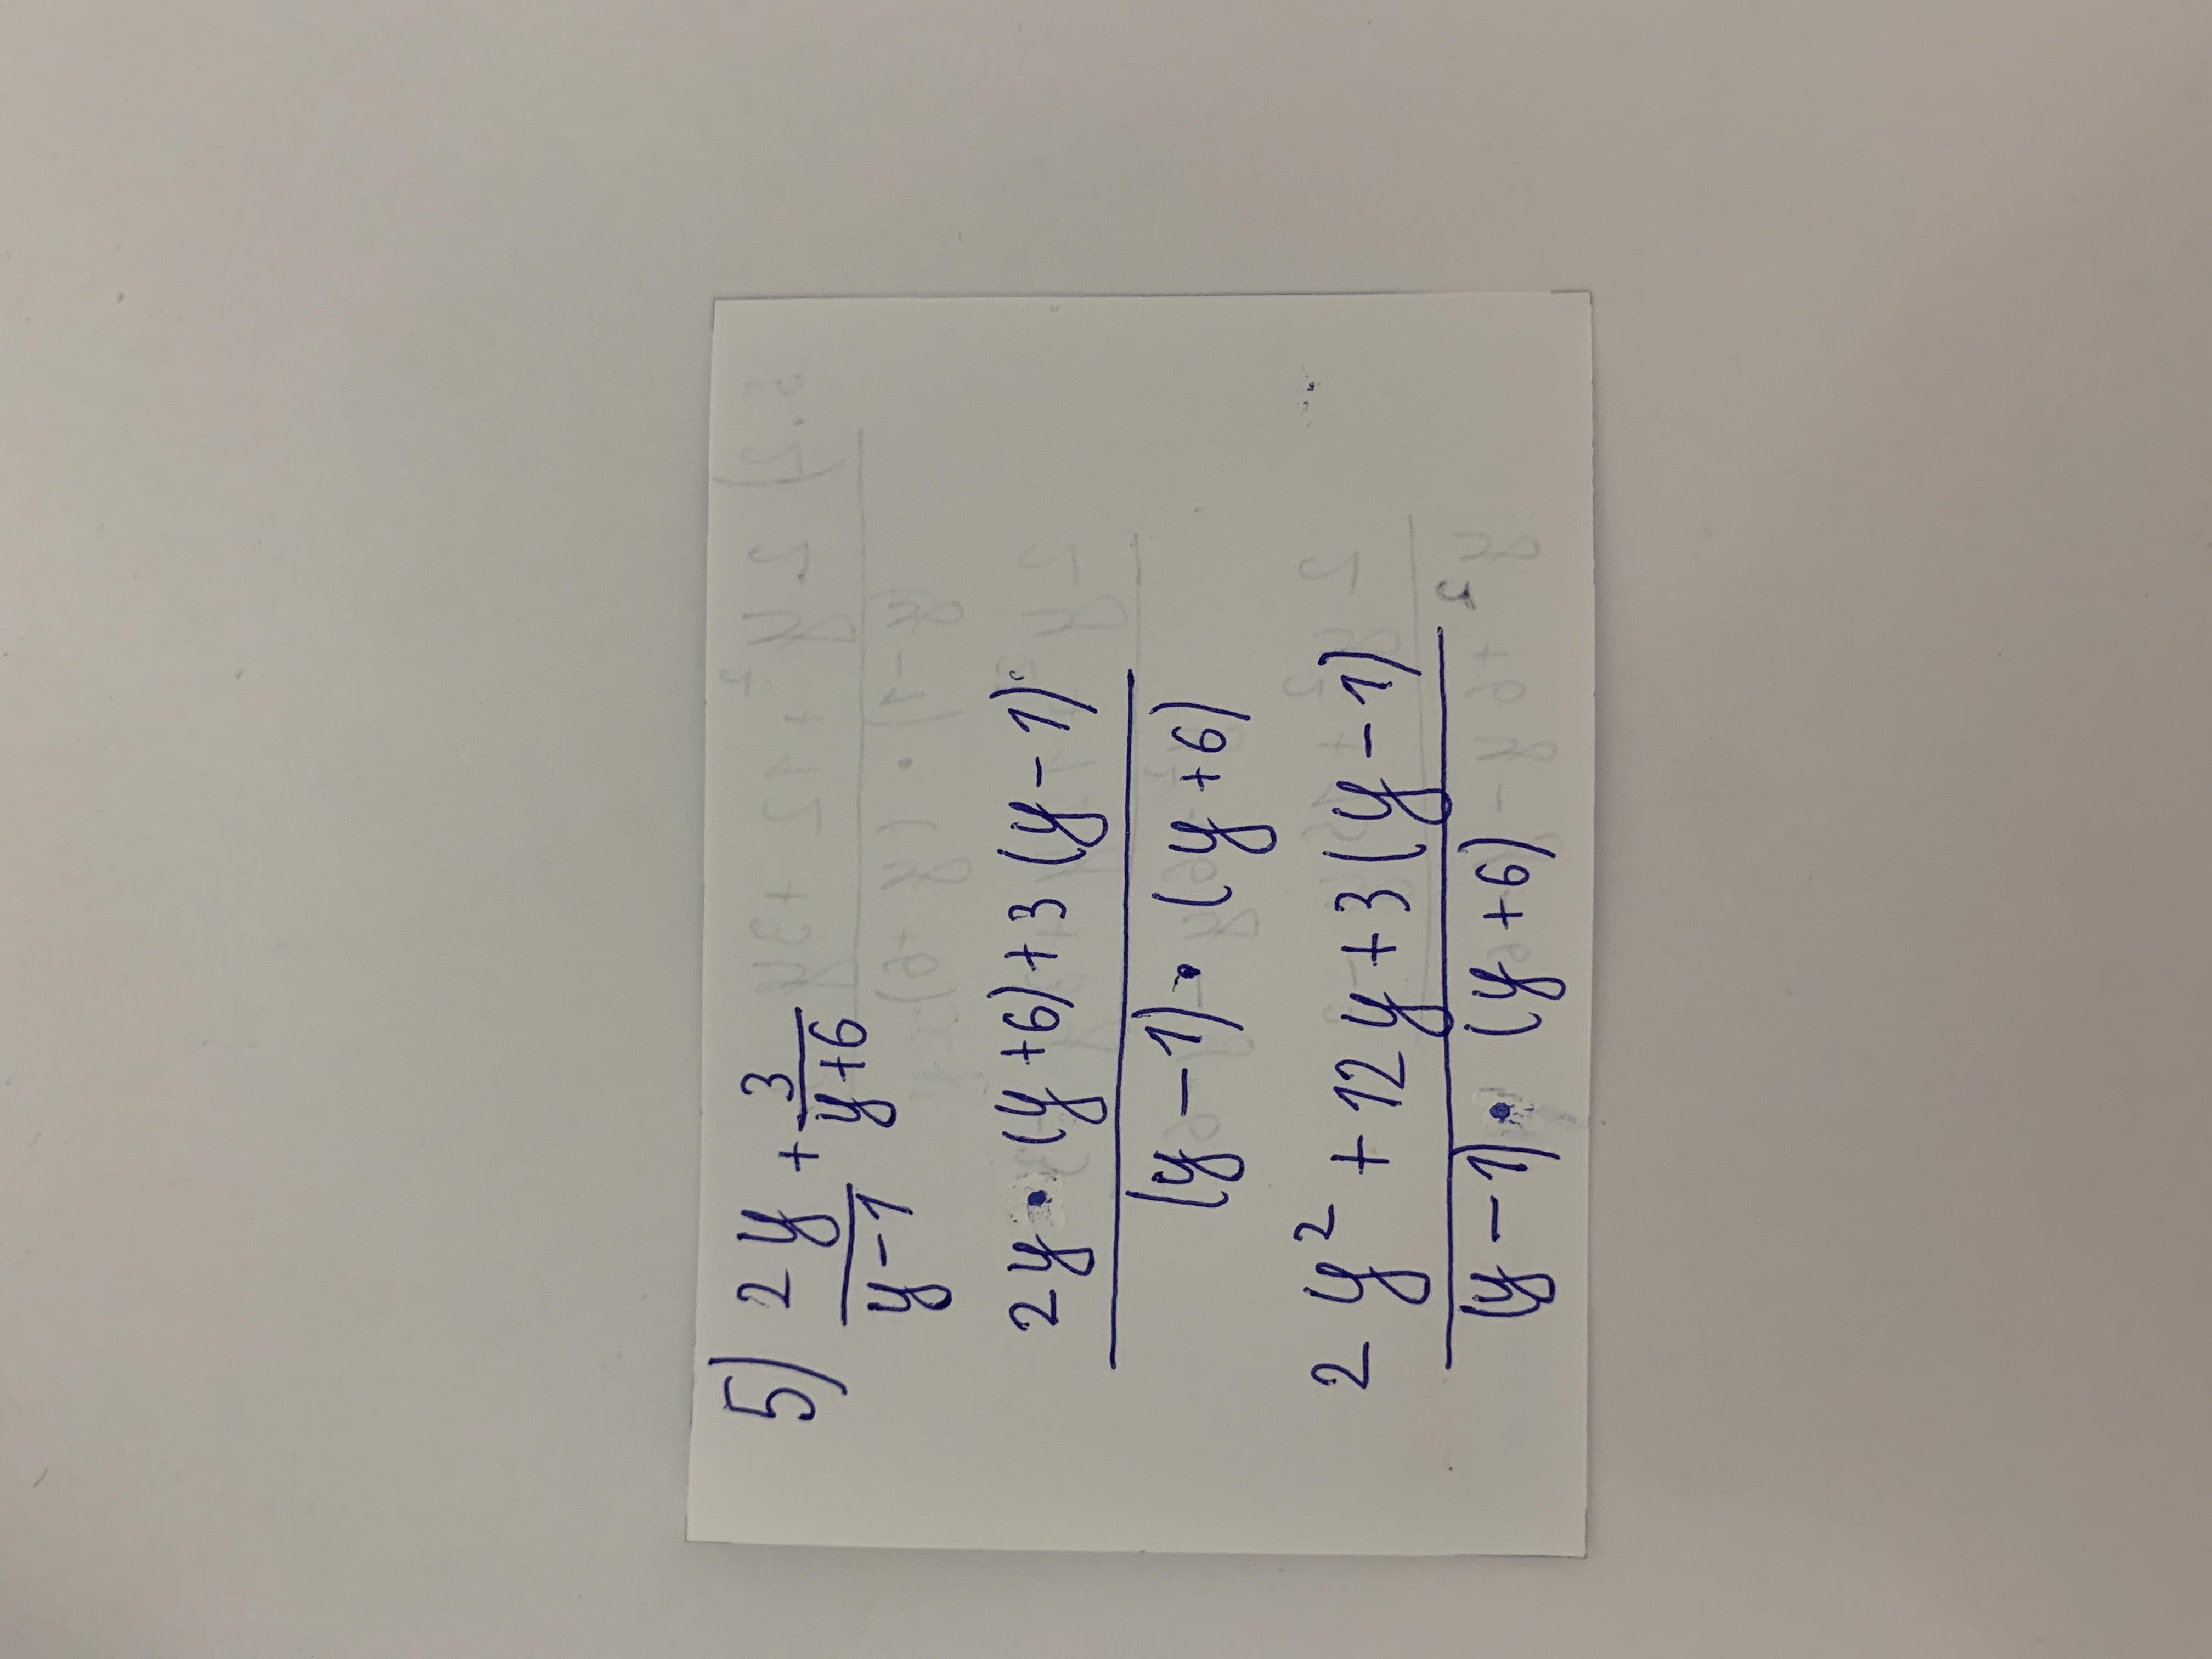 5) 2y/(y-1) + 3/(y+6)
2y•(y+6)+3(y-1)
(y-1)•(y+6)
2y² + 12y+3(y-1)
(y-1)•(y+6)